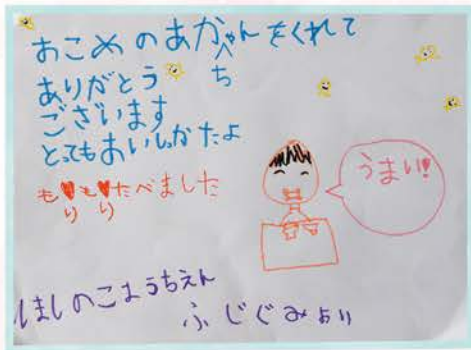 おこめのあかちゃんをくれて
ありがとう
ございます
とってもおいしかたよ
もりもりたべました
うまい!
ほしのこようちえん
ふじぐみより